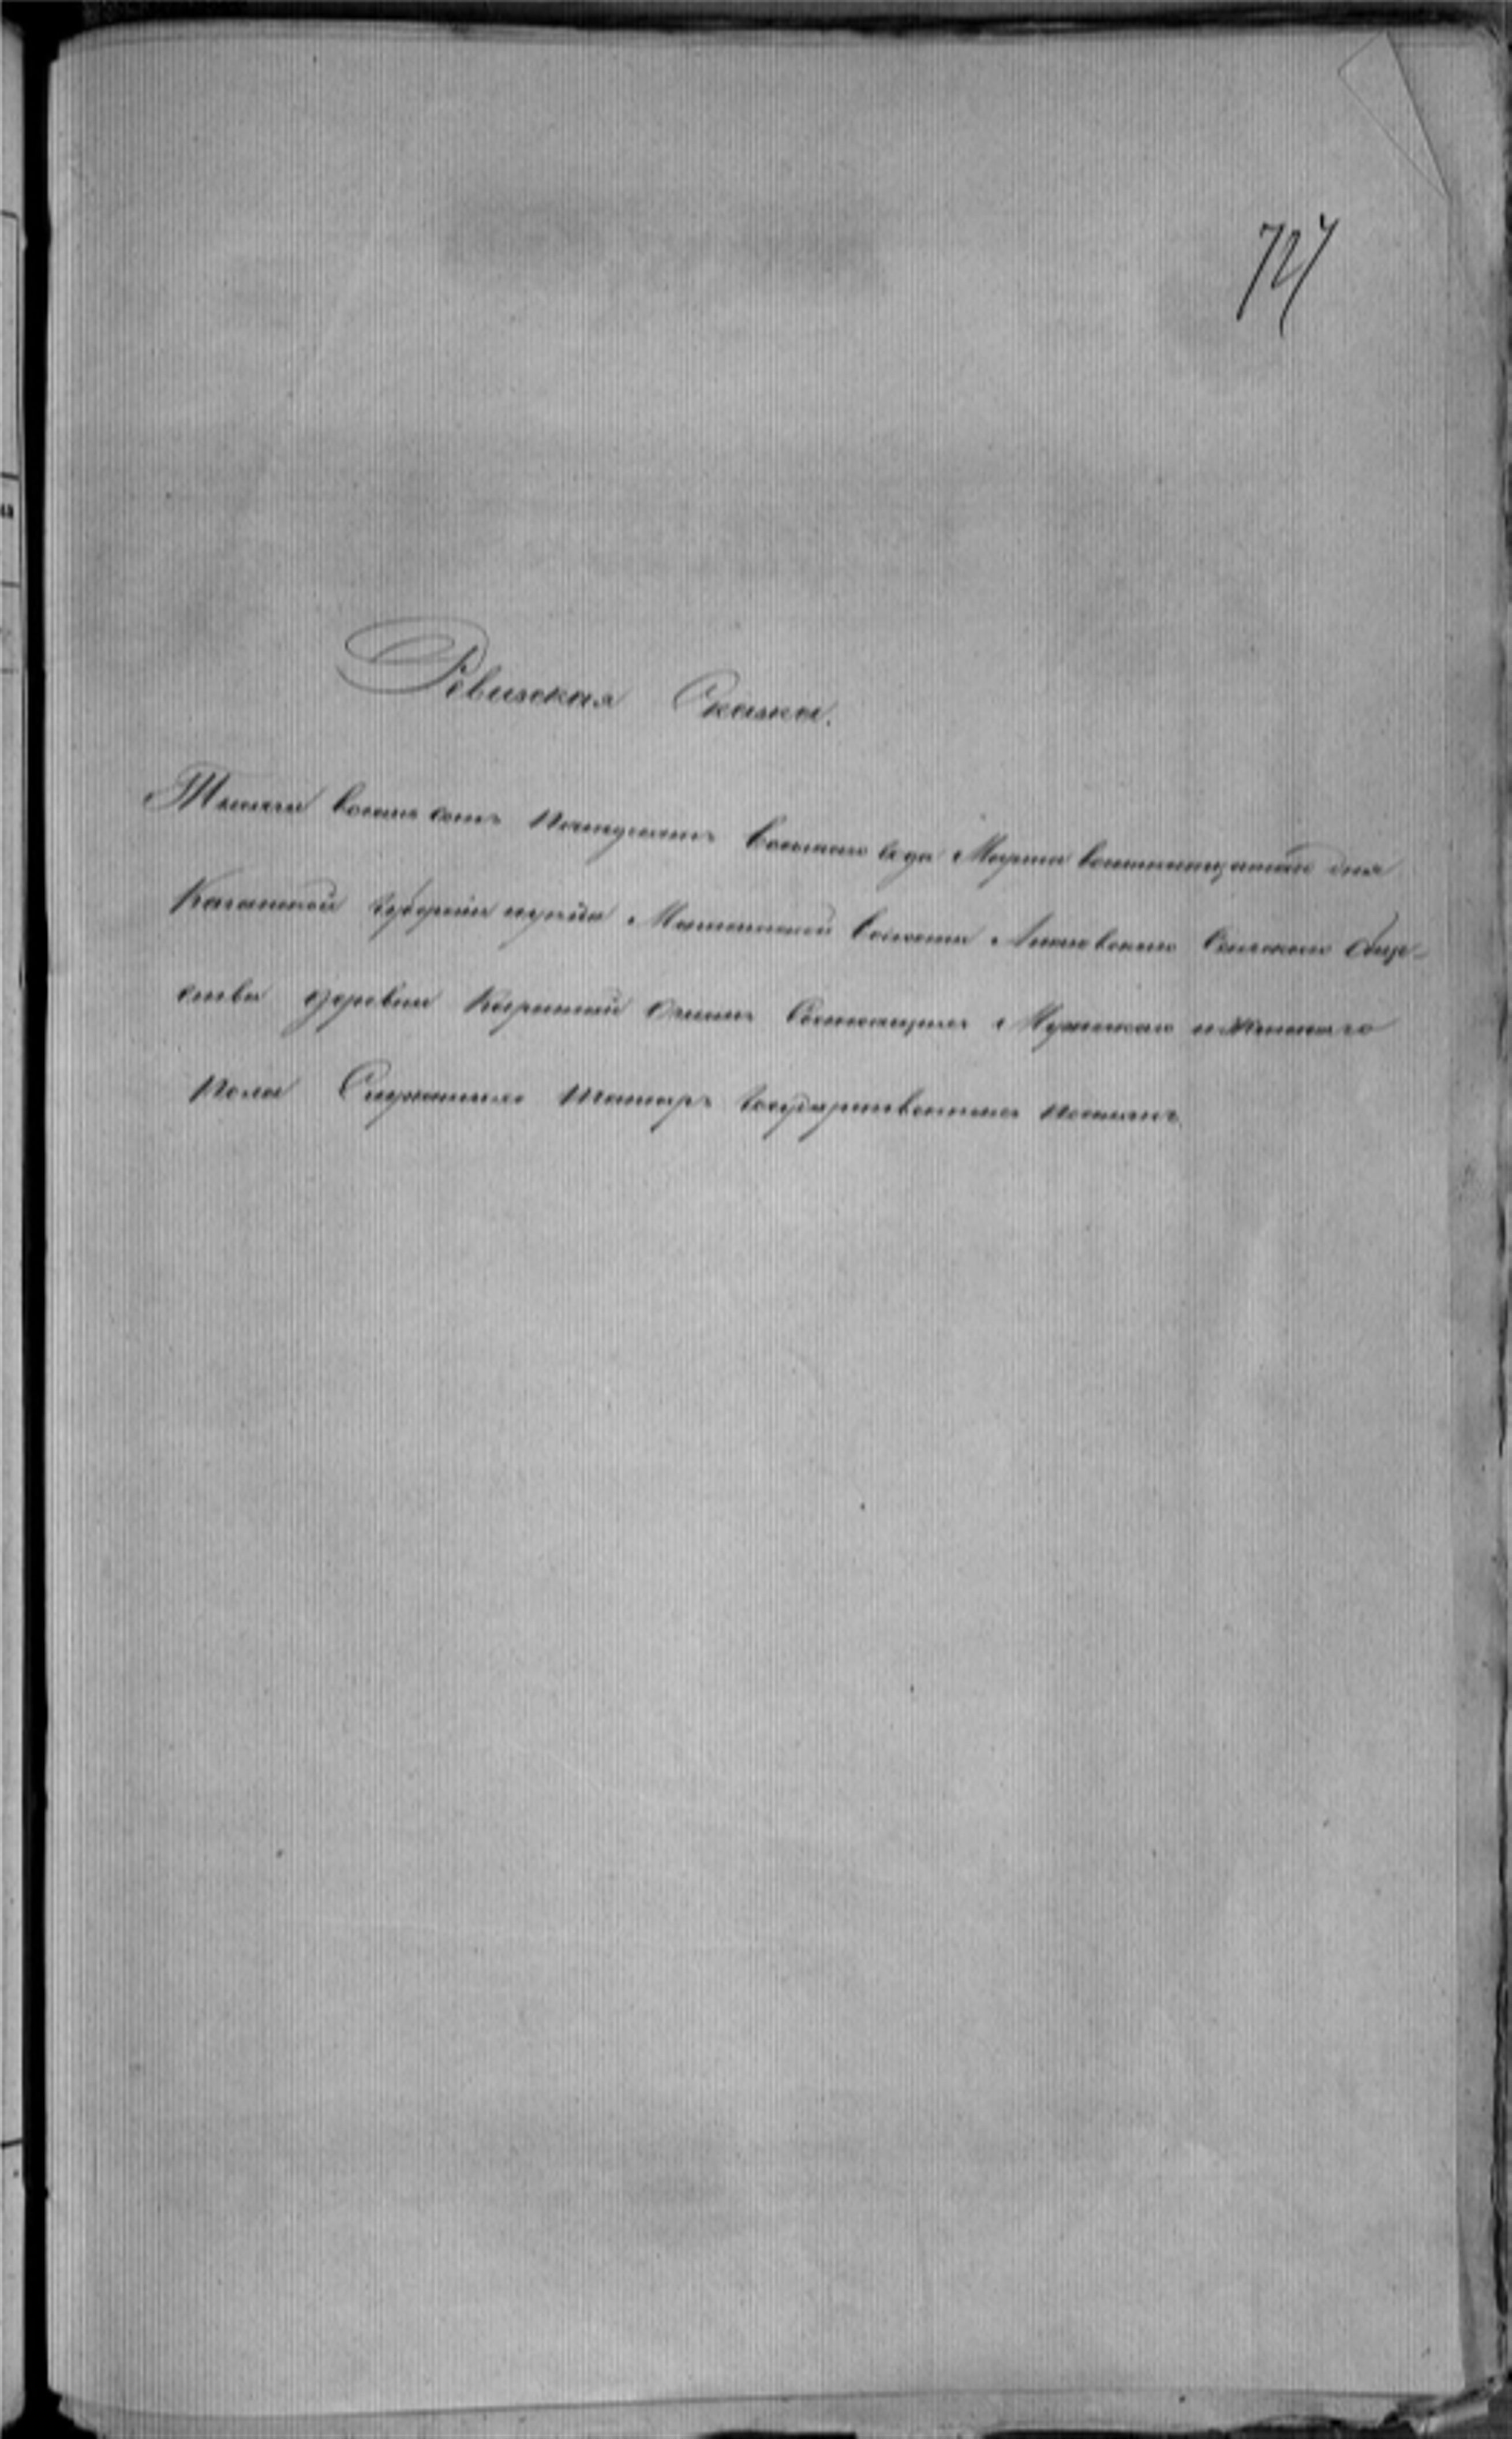 727
Ревизская Сказка.
Тысяча восемь сотъ пятьдесятъ восьмаго года Марта восемнадцатаго дня
Казанской губерніи и уѣзда Мамсинской волости Сельскаго Обще-
ства деревни о состоящихъ Мужескаго и женскаго
пола Служилыхъ татаръ государственныхъ